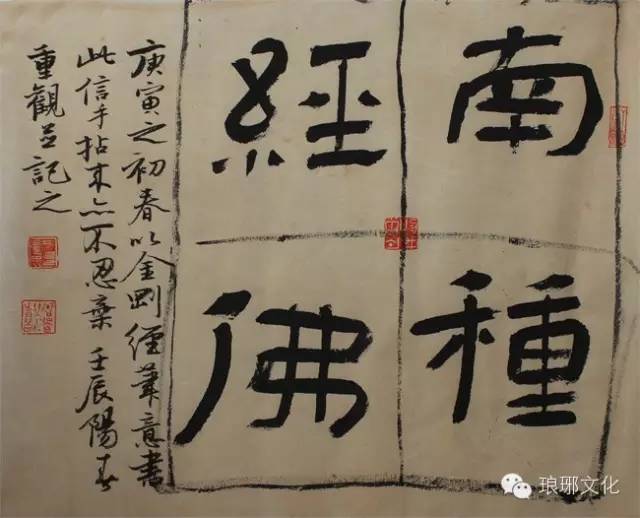 南種
經佛
庚寅之初春以金剛經筆意書
此信手拈来亦不忍棄 壬辰陽春
重觀並記之
琅琊文化